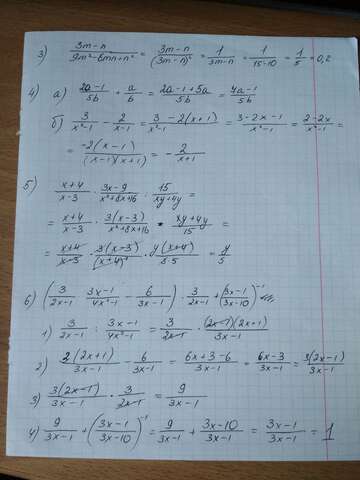 3) (3m-n)/(9m²-6mn+n²) = (3m-n)/(3m-n)² = 1/(3m-n) = 1/(15-10) = 1/5 = 0,2
4) а) (2a-1)/5b + a/b = (2a-1+5a)/5b = (7a-1)/5b
б) 3/(x²-1) - 2/(x-1) = (3-2(x+1))/(x²-1) = (3-2x-1)/(x²-1) = (2-2x)/(x²-1) =
= -2(x-1)/((x-1)(x+1)) = -2/(x+1)
5)
(x+4)/(x-3) · (3x-9)/(x²+8x+16) : 15/(xy+4y) =
= (x+4)/(x-3) · 3(x-3)/(x²+8x+16) · (xy+4y)/15 =
= (x+4)/(x-3) · 3(x-3)/(x+4)² · y(x+4)/(3·5) = y/5
6) (3/(2x-1) : (3x-1)/(4x²-1) - 6/(3x-1)) · 3/(2x-1) + ((3x-1)/(3x-10))⁻¹
1) 3/(2x-1) : (3x-1)/(4x²-1) = 3/(2x-1) · (2x-1)(2x+1)/(3x-1)
2) 3(2x+1)/(3x-1) - 6/(3x-1) = (6x+3-6)/(3x-1) = (6x-3)/(3x-1) = 3(2x-1)/(3x-1)
3) 3(2x-1)/(3x-1) · 3/(2x-1) = 9/(3x-1)
4) 9/(3x-1) + ((3x-1)/(3x-10))⁻¹ = 9/(3x-1) + (3x-10)/(3x-1) = (3x-1)/(3x-1) = 1